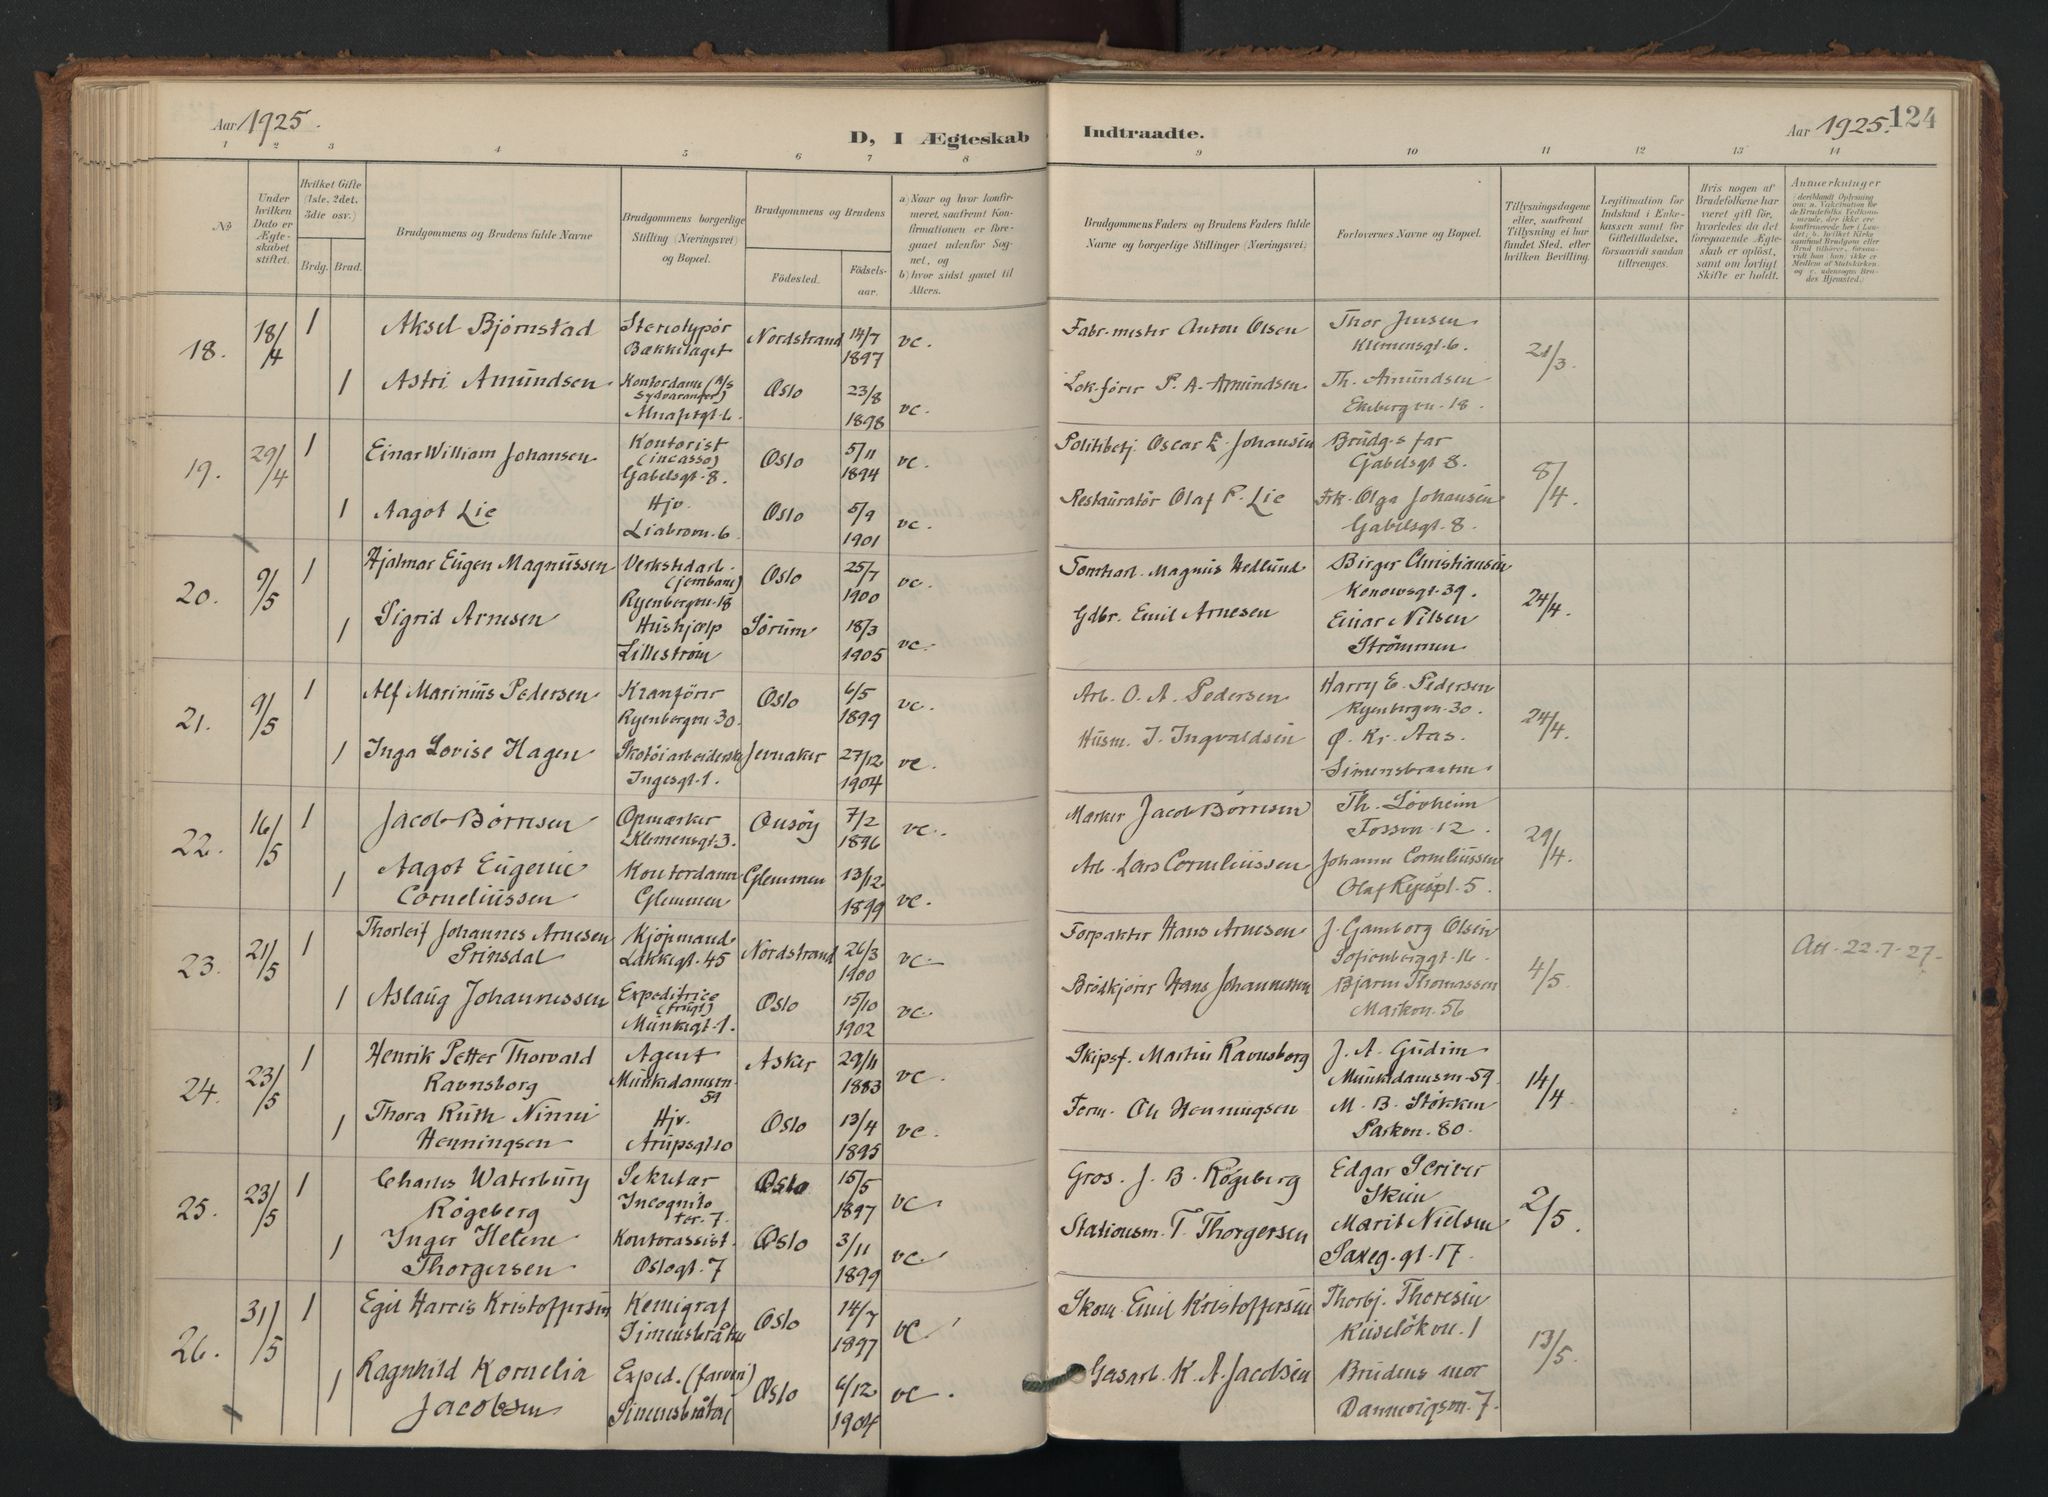 Aar 1925.
D, I Ægteskab Indtraadte.
Aar 1925. 124
1 2 3 4 5 6 7 8 9 10 11 12 13 14
№
Under hvilken Dato er Ægteskabet stiftet.
Hvilket Gifte (1ste, 2det, 3die osv.)
Brdg. Brud.
Brudgommens og Brudens fulde Navne
Brudgommens borgerlige Stilling (Næringsvei) og Bopæl.
Brudgommens og Brudens
Fødested. Fødselsaar.
a) Naar og hvor konfirmeret, saafremt Konfirmationen er foregaaet udenfor Sognet, og
b) hvor sidst gaaet til Alters.
Brudgommens Faders og Brudens Faders fulde Navne og borgerlige Stillinger (Næringsvei).
Forlovernes Navne og Bopæl.
Tillysningsdagene eller, saafremt Tillysning ei har fundet Sted, efter hvilken Bevilling.
Legitimation for Indskud i Enkekassen samt for Giftetilladelse, forsaavidt saadan tiltrænges.
Hvis nogen af Brudefolkene har været gift før, hvorledes da det foregaaende Ægteskab er opløst, samt om lovligt Skifte er holdt.
Anmerkninger
18. 18/4 1 Aksel Bjørnstad Stereotypør Bækkelaget Nordstrand 14/7 1897 vc. Fabr-mester Anton Olsen Thor Jensen Klemensgt. 6. 21/3.
1 Astri Amundsen Kontordame (A/S Sydvaranger) Oslo 23/8 1898 vc. Lok.fører P. A. Amundsen Th. Amundsen Ekebergvn. 18.
19. 29/4 1 Einar William Johansen Kontorist (incasso) Gabelsgt. 8. Oslo 5/11 1894 vc. Politibetj. Oscar E. Johansen Brudg.s far Gabelsgt 8. 8/4.
1 Aagot Lie Hjv. Liabrovn. 6 Oslo 5/9 1901 vc. Restauratør Olaf P. Lie Frk. Olga Johansen Gabelsgt. 8.
20. 9/5 1 Hjalmar Eugen Magnussen Verkstedarb. (jernbane) Ryenbergvn. 18 Oslo 25/7 1900 vc. Tomtearb. Magnus Hedlund Birger Christiansen Konowsgt. 39. 24/4.
1 Sigrid Arnesen Hushjælp Lillestrøm Sørum 18/3 1905 vc. Gdbr. Emil Arnesen Einar Nilsen Strømmen.
21. 9/5 1 Alf Marinius Pedersen Kranfører Ryenbergvn. 30. Oslo 6/5 1899 vc. Arb. O. A. Pedersen Harry E. Pedersen Ryenbergvn. 30. 24/4.
1 Inga Lovise Hagen Skotøiarbeiderske Ingesgt. 1. Jevnaker 27/12 1904 vc. Husm. J. Ingvaldsen Ø. Kr. Aas. Simensbraaten.
22. 16/5 1 Jacob Børresen Opmærker Klemensgt 3. Onsøy 7/2 1896 vc. Mærker Jacob Børresen Th. Løvheim Fossvn. 12. 29/4.
1 Aagot Eugenie Corneliussen Kontordame Glemmen Glemmen 13/12 1899 vc. Arb. Lars Corneliussen Johanne Corneliussen Olaf Ryespl. 5.
23. 21/5 1 Thorleif Johannes Arnesen Prinsdal Kjøpmand Lakkegt. 45 Nordstrand 26/3 1900 vc. Forpakter Hans Arnesen J. Gamborg Olsen Sofienberggt. 16. 4/5. Att. 22-7-27.
1 Aslaug Johannessen Expeditrice (frugt) Munkegt. 1. Oslo 15/10 1902 vc. Brødkjører Hans Johannessen Bjarne Thomassen Markvn. 56
24. 23/5 1 Henrik Petter Thorvald Ravnsborg Agent Munkedamsvn. 59 Asker 29/11 1883 vc. Skipsf. Martin Ravnsborg J. A. Gudim Munkedamsvn. 59. 14/4
1 Thora Ruth Ninni Henningsen Hjv. Arupsgt 10 Oslo 13/4 1895 vc. Form. Ole Henningsen M. B. Støkken Parkvn. 80.
25. 23/5 1 Charles Waterbury Røgeberg Sekretær Incognito ter. 7. Oslo 15/5 1897 vc. Gros. J. B. Røgeberg Edgar Scriver Skien 2/5.
1 Inger Helene Thorgersen Kontorassist. Oslogt. 7 Oslo 3/11 1899 vc. Stationsm. T. Thorgersen Marit Nielsen Saxeg. gt. 17.
26. 31/5 1 Egil Harris Kristoffersen Kemigraf Simensbråten Oslo 14/7 1897 vc. Skom. Emil Kristoffersen Thorbj. Thoresen Ruseløkvn. 1 13/5.
1 Ragnhild Kornelia Jacobsen Exped. (farveri) Simensbråten Oslo 6/12 1904 vc. Gasarb. K. A. Jacobsen Brudens mor Dannevigsvn. 7.